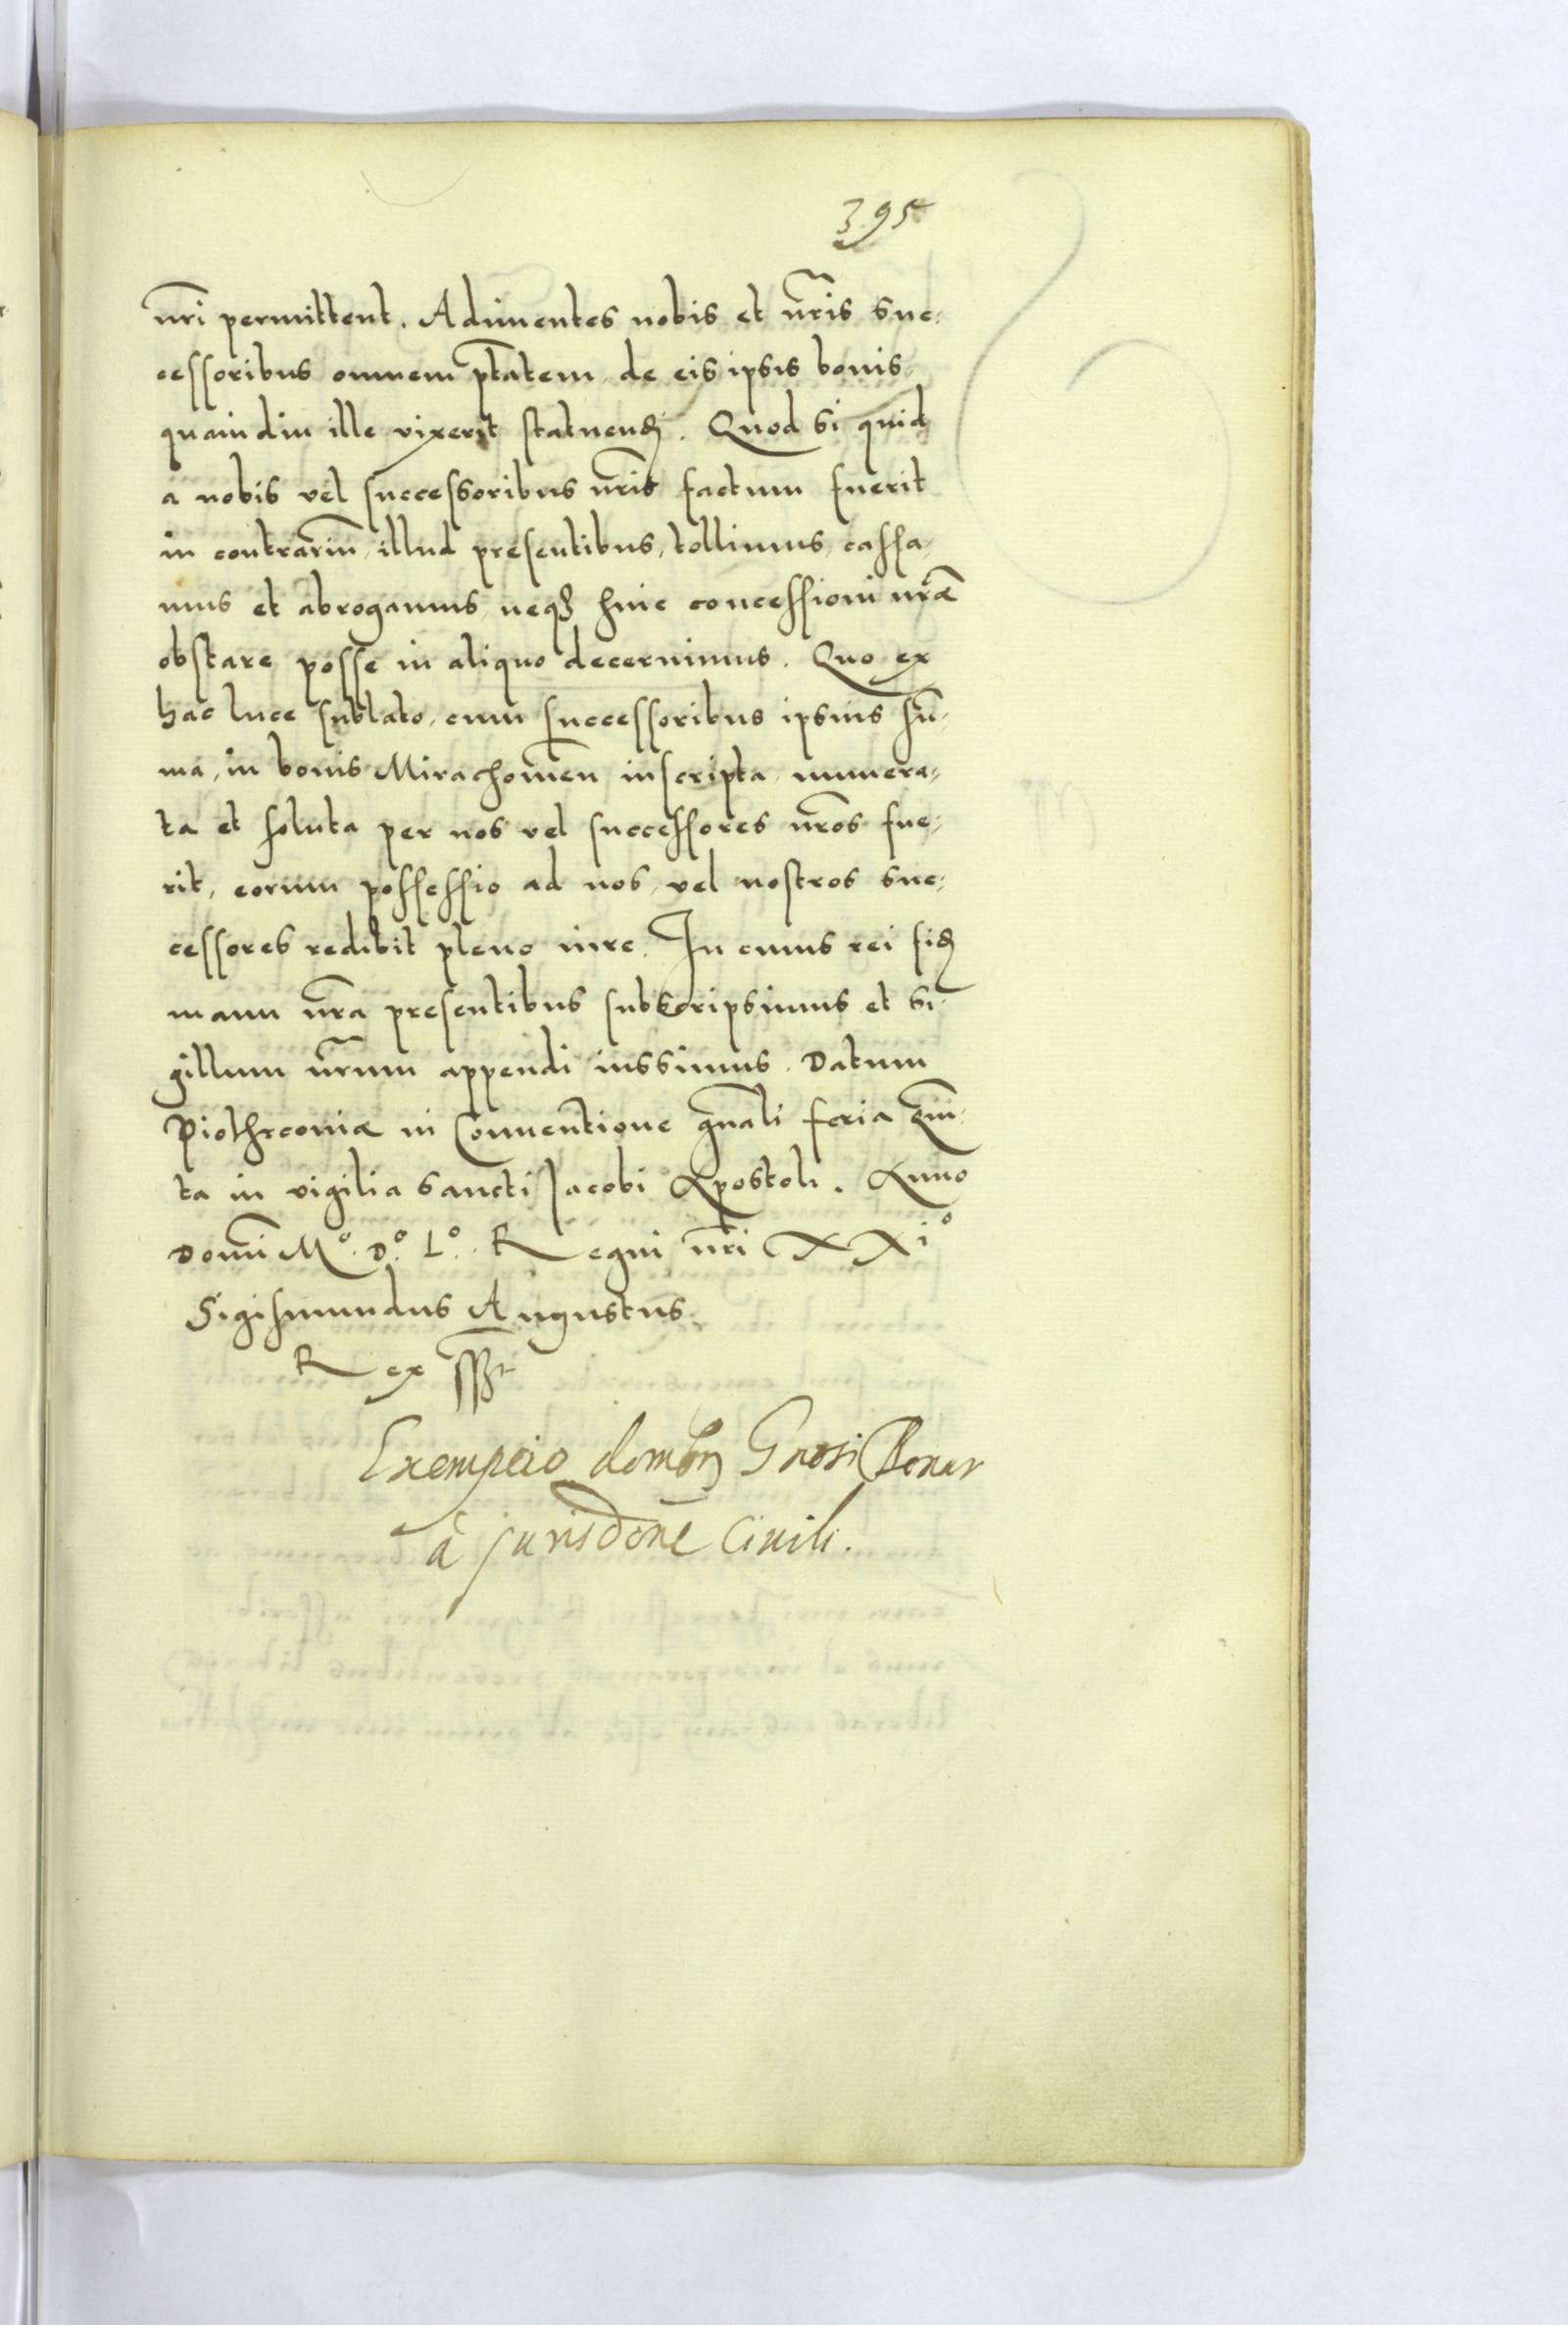 395
nri permittent. Adimentes nobis et nris suc,
cessoribus omnem ptatem, de eis ipsis bonis,
quamdiu ille vixerit statuendi. Quod si quid
a nobis vel successoribus nris factum fuerit
in contrariu, illud presentibus, tollimus, cassa,
mus et abrogamus, neqz huic concessioni nræ
obstare posse in aliquo decernimus. Quo ex
hac luce sublato, cum successoribus ipsius su,
ma, in bonis Mirachowien inscripta, numera,
ta et soluta per nos vel successores nros fue,
rit, eorum possessio ad nos, vel nostros suc,
cessores redibit pleno iure. In cuius rei fidem
manu nra presentibus subscripsimus et si,
gillum nrum appendi iussimus. Datum
Piothrconiæ in Conuentione gnali feria quin,
ta in vigilia sancti Jacobi Apostoli. Anno
Domi Mº. Dº. Lº. Regni nri XXiº
Sigismundus Augustus
Rex sst
Exempcio domor Gnosi Bonar
à jurisdone Ciuili.